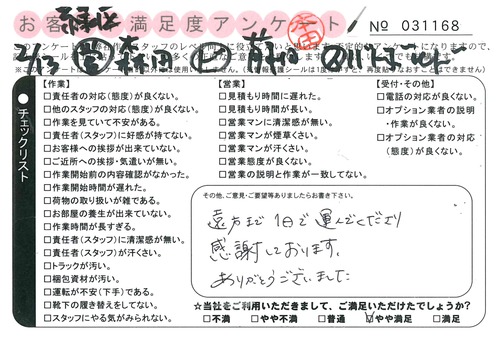 お客様満足度アンケート
№ 031168
チェックリスト
【作業】
□責任者の対応(態度)が良くない。
□他のスタッフの対応(態度)が良くない。
□作業を見ていて不安がある。
□責任者(スタッフ)に好感が持てない。
□お客様への挨拶が出来ていない。
□ご近所への挨拶・気遣いが無い。
□作業開始前の内容確認がなかった。
□作業開始時間が遅れた。
□荷物の取り扱いが雑である。
□お部屋の養生が出来ていない。
□作業時間が長すぎる。
□責任者(スタッフ)に清潔感が無い。
□責任者(スタッフ)が汗くさい。
□トラックが汚い。
□梱包資材が汚い。
□運転が不安(下手)である。
□靴下の履き替えをしてない。
□スタッフにやる気がみられない。
【営業】
□見積もり時間に遅れた。
□見積もり時間が長い。
□営業マンに清潔感が無い。
□営業マンが煙草くさい。
□営業マンが汗くさい。
□営業態度が良くない。
□営業の説明と作業が一致してない。
【受付・その他】
□電話の対応が良くない。
□オプション業者の説明
・作業が良くない。
□オプション業者の対応
(態度)が良くない。
その他、ご意見・ご要望等ありましたらお書き下さい。
遠方まで1日で運んでくださり
感謝しております。
ありがとうございました
☆当社をご利用いただきまして、ご満足いただけたでしょうか?
□不満 □やや不満 □普通 ☑やや満足 □満足